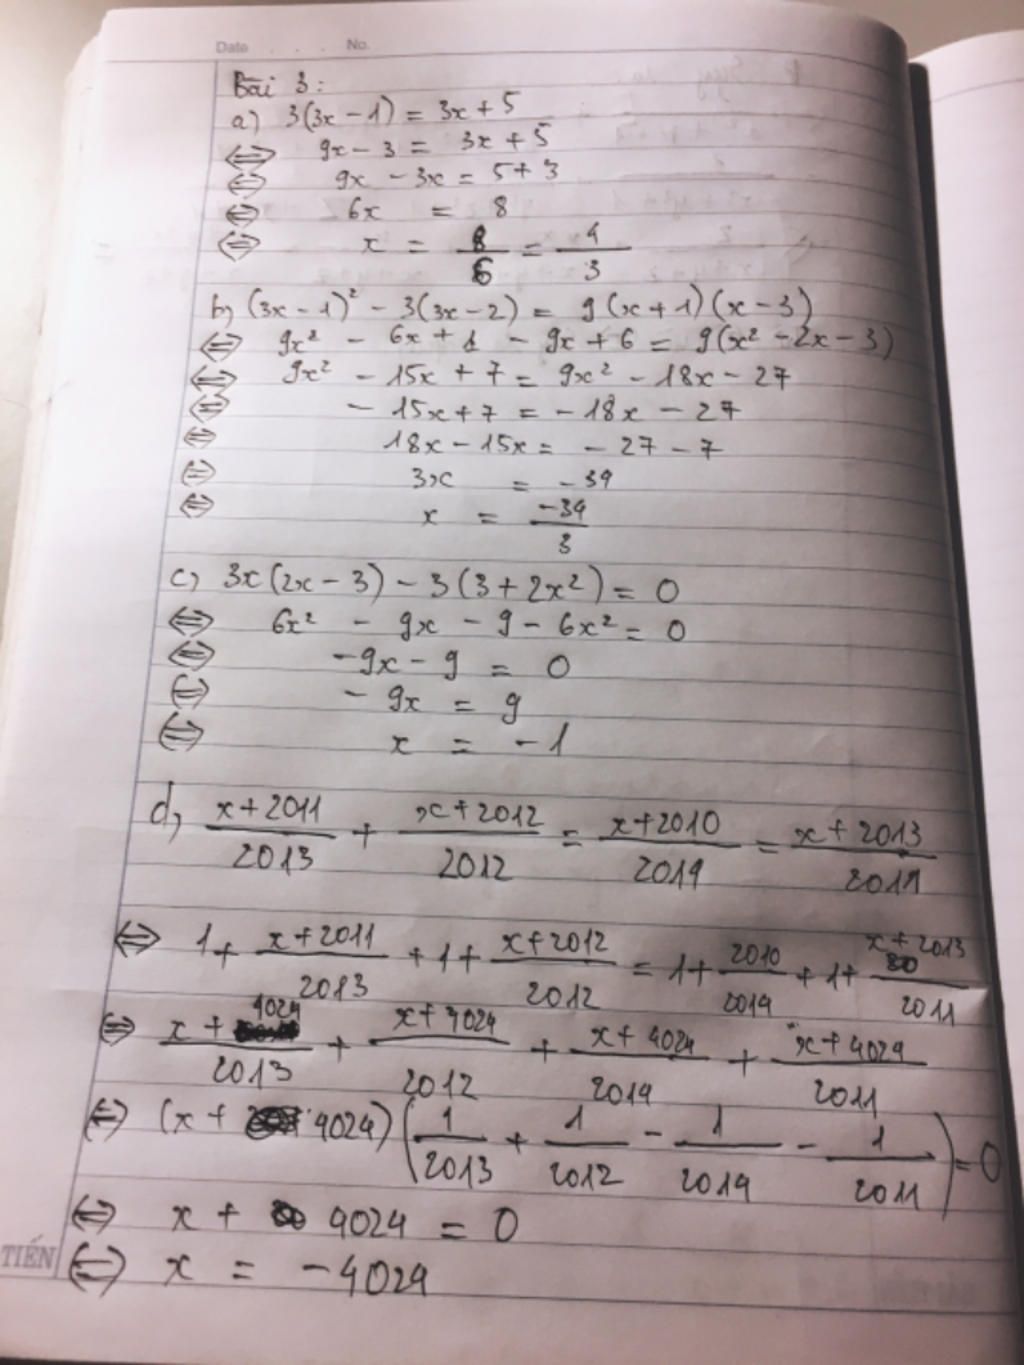 Date . . . No.
Bài 3:
a) 3(3x - 1) = 3x + 5
⇔ 9x - 3 = 3x + 5
⇔ 9x - 3x = 5 + 3
⇔ 6x = 8
⇔ x = 8/6 = 4/3
b) (3x - 1)² - 3(3x - 2) = 9(x + 1)(x - 3)
⇔ 9x² - 6x + 1 - 9x + 6 = 9(x² - 2x - 3)
⇔ 9x² - 15x + 7 = 9x² - 18x - 27
⇔ - 15x + 7 = - 18x - 27
⇔ 18x - 15x = - 27 - 7
⇔ 3x = - 34
⇔ x = -34/3
c) 3x(2x - 3) - 3(3 + 2x²) = 0
⇔ 6x² - 9x - 9 - 6x² = 0
⇔ -9x - 9 = 0
⇔ - 9x = 9
⇔ x = - 1
d) (x + 2011)/2013 + (x + 2012)/2012 = (x + 2010)/2014 = (x + 2013)/2011
⇔ 1 + (x + 2011)/2013 + 1 + (x + 2012)/2012 = 1 + 2010/2014 + 1 + (x + 2013)/2011
⇔ (x + 4024)/2013 + (x + 4024)/2012 + (x + 4024)/2014 + (x + 4024)/2011
⇔ (x + 4024)(1/2013 + 1/2012 - 1/2014 - 1/2011) = 0
⇔ x + 4024 = 0
TIẾN
⇔ x = - 4024